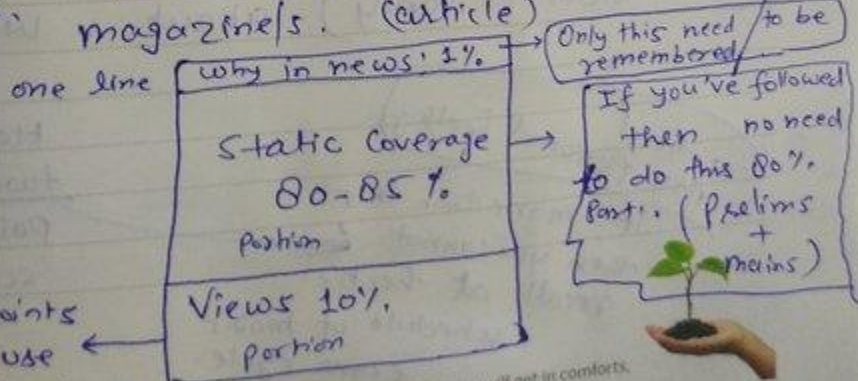 magazine/s. (article)
one line
Why in news' 1%
Only this need to be
remembered
Static Coverage
80-85%
portion
If you've followed
then no need
to do this 80%.
Part.. (Prelims
+
mains)
Views 10%
portion
use
in comforts.